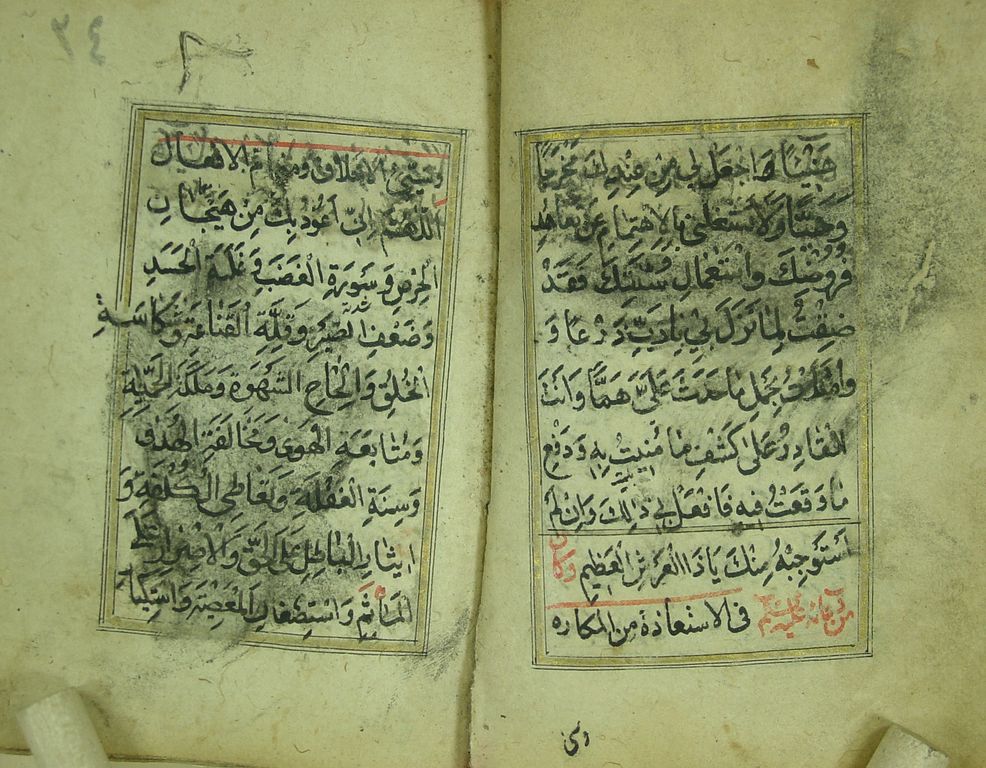 هَنِيئًا وَاجْعَل لِي مِنْ عِنْدِكَ مَخْرَجًا
وَحِيًّا وَلَا تَشْغَلْنِي بِالِاهْتِمَامِ عَنْ تَعَاهُدِ
فُرُوضِكَ وَاسْتِعْمَالِ سُنَّتِكَ فَقَدْ
ضِقْتُ لِمَا نَزَلَ بِي يَا رَبِّ ذَرْعًا وَ
امْتَلَأْتُ بِحَمْلِ مَا حَدَثَ عَلَيَّ هَمًّا وَأَنْتَ
الْقَادِرُ عَلَى كَشْفِ مَا مُنِيتُ بِهِ وَدَفْعِ
مَا وَقَعْتُ فِيهِ فَافْعَلْ بِي ذَلِكَ وَإِنْ لَمْ
اَسْتَوْجِبْهُ مِنْكَ يَا ذَا الْعَرْشِ الْعَظِيمِ وكان
من دعائه عليه السلام فى الاستعاذة من المكاره
٢٤
وسيئ الاخلاق ومذام الافعال
اللَّهُمَّ اِنِّي اَعُوذُ بِكَ مِنْ هَيَجَانِ
الْحِرْصِ وَسَوْرَةِ الْغَضَبِ وَغَلَبَةِ الْحَسَدِ
وَضَعْفِ الصَّبْرِ وَقِلَّةِ الْقَنَاعَةِ وَشَكَاسَةِ
الْخُلُقِ وَاِلْحَاحِ الشَّهْوَةِ وَمَلَكَةِ الْحَمِيَّةِ
وَمُتَابَعَةِ الْهَوَى وَمُخَالَفَةِ الْهُدَى
وَسِنَةِ الْغَفْلَةِ وَتَعَاطِي الْكُلْفَةِ وَ
اِيثَارِ الْبَاطِلِ عَلَى الْحَقِّ وَالْاِصْرَارِ عَلَى
الْمَآثِمِ وَاسْتِصْغَارِ الْمَعْصِيَةِ وَاسْتِكْبَا